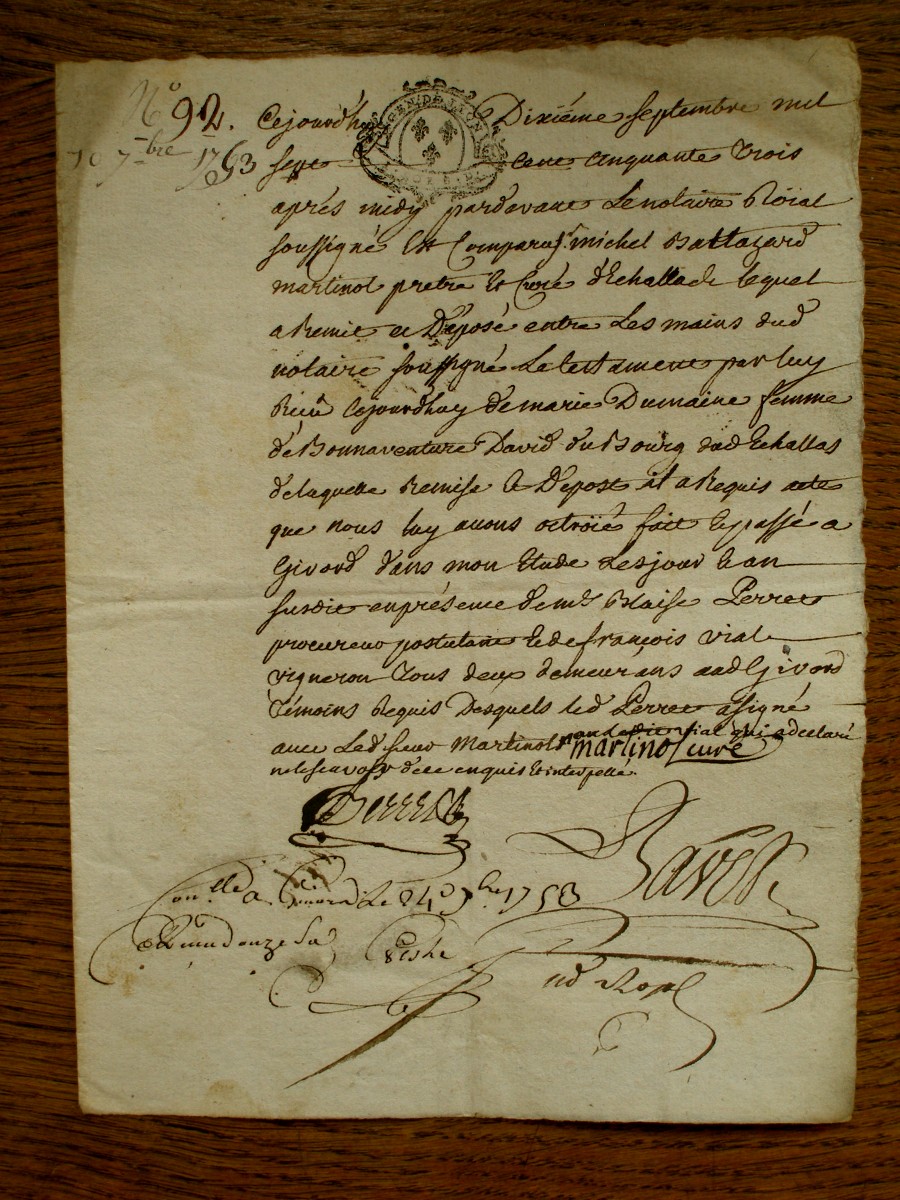 N° 92.
10 7bre 1753
GEN. DE LYON
Cejourd'huy Dixiéme septembre mil
sept cent cinquante trois
aprés midy pardevant Le notaire Roïal
soussigné Est Comparu sr. michel Baltazard
martinot pretre Et Curé d'Echallack lequel
a Remit et Déposé entre Les mains dud
notaire soussigné Le testament par luy
Reçu Cejourdhuy de marie Dumaine femme
de Bonnaventure David du Bourg dud Echallas
de laquelle Remise & Depost il a Requis acte
que nous luy avons octroïé fait Et passé a
Givord dans mon Etude Les jour & an
susdit en présence de me. Blaise Perret
procureur postulant Et de françois vial
vigneron Tous deux demeurans aud Givord
témoins Requis Desquels led Perret a signé
avec Led sieur Martinot non ledit vial qui a declaré
ne le scavoir de ce enquis & interpellé.
martinot curé
Perret
Ravet
Con.llé a Givord Le 24e 7bre 1753
Reçu douze sols
nd Royl